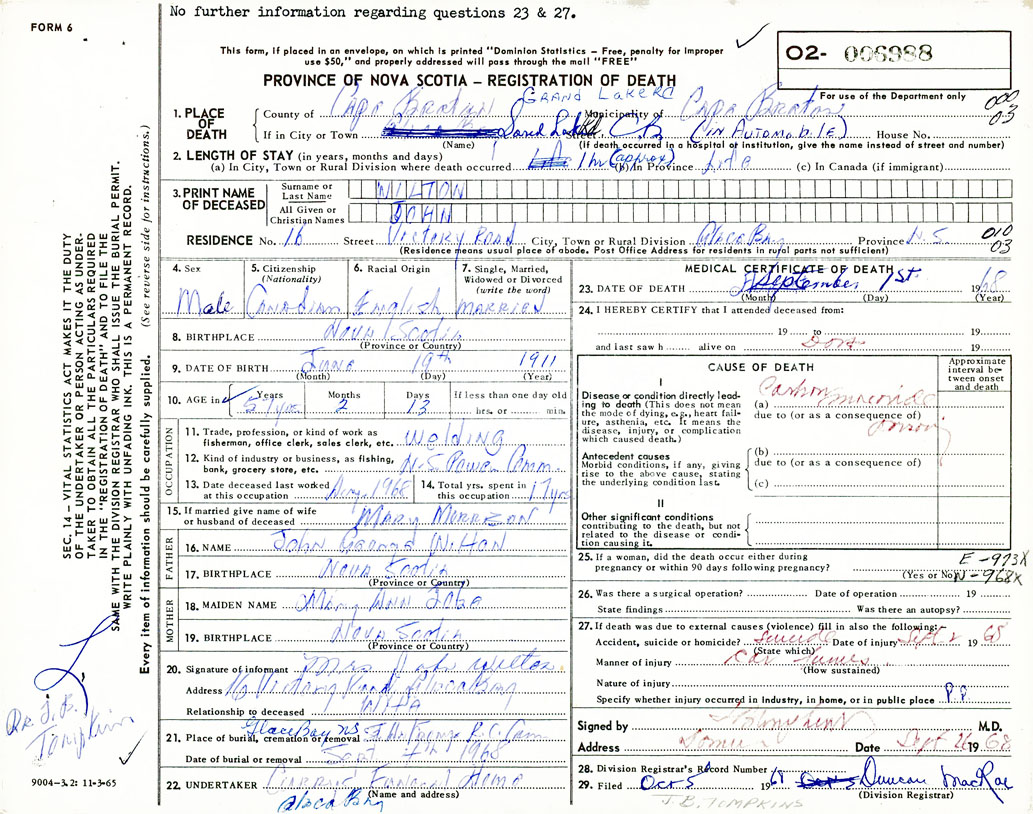 No further information regarding questions 23 & 27.
FORM 6
This form, if placed in an envelope, on which is printed "Dominion Statistics — Free, penalty for improper
use $50," and properly addressed will pass through the mail "FREE"
O2- 006988
For use of the Department only
PROVINCE OF NOVA SCOTIA — REGISTRATION OF DEATH
GRAND LAKE RD
000
03
1. PLACE OF DEATH
County of Cape Breton Municipality of Cape Breton
If in City or Town Street CB (in Automobile) House No.
(Name) (If death occurred in a hospital or institution, give the name instead of street and number)
2. LENGTH OF STAY (in years, months and days)
(a) In City, Town or Rural Division where death occurred 1 hr (approx) (b) In Province Life (c) In Canada (if immigrant)
3. PRINT NAME OF DECEASED
Surname or Last Name WILTON
All Given or Christian Names JOHN
RESIDENCE No. 16 Street Victory Road City, Town or Rural Division Glace Bay Province N.S.
(Residence means usual place of abode. Post Office Address for residents in rural parts not sufficient)
010
03
4. Sex Male
5. Citizenship (Nationality) Canadian
6. Racial Origin English
7. Single, Married, Widowed or Divorced (write the word) MARRIED
8. BIRTHPLACE Nova Scotia
(Province or Country)
9. DATE OF BIRTH June 19th 1911
(Month) (Day) (Year)
10. AGE in Years 57 yrs Months 2 Days 13 If less than one day old hrs. or min.
OCCUPATION
11. Trade, profession, or kind of work as fisherman, office clerk, sales clerk, etc. welding
12. Kind of industry or business, as fishing, bank, grocery store, etc. N.S. Power Comm.
13. Date deceased last worked at this occupation Aug. 1968
14. Total yrs. spent in this occupation 17 yrs
15. If married give name of wife or husband of deceased Mary Morrison
FATHER
16. NAME John George Wilton
17. BIRTHPLACE Nova Scotia
(Province or Country)
MOTHER
18. MAIDEN NAME Mary Ann
19. BIRTHPLACE Nova Scotia
(Province or Country)
20. Signature of informant Mrs John Wilton
Address 16 Victory Road Glace Bay
Relationship to deceased Wife
21. Place of burial, cremation or removal Glace Bay NS R.C. Cem
Date of burial or removal Sept 4th 1968
22. UNDERTAKER Funeral Home
(Name and address)
Glace Bay
MEDICAL CERTIFICATE OF DEATH
23. DATE OF DEATH September 1st 1968
(Month) (Day) (Year)
24. I HEREBY CERTIFY that I attended deceased from:
19 to 19
and last saw h alive on 19
CAUSE OF DEATH
Approximate interval between onset and death
I
Disease or condition directly leading to death (This does not mean the mode of dying, e.g., heart failure, asthenia, etc. It means the disease, injury, or complication which caused death.)
(a) Carbon monoxide
due to (or as a consequence of)
Antecedent causes
Morbid conditions, if any, giving rise to the above cause, stating the underlying condition last.
(b)
due to (or as a consequence of)
(c)
II
Other significant conditions
contributing to the death, but not related to the disease or condition causing it.
25. If a woman, did the death occur either during pregnancy or within 90 days following pregnancy?
(Yes or No)
E-973X
N-968X
26. Was there a surgical operation? Date of operation 19
State findings Was there an autopsy?
27. If death was due to external causes (violence) fill in also the following:
Accident, suicide or homicide? Suicide Date of injury Sept 1968
(State which)
Manner of injury Car fumes
(How sustained)
Nature of injury
Specify whether injury occurred in industry, in home, or in public place P.P.
Signed by M.D.
Address Date Sept 26 1968
28. Division Registrar's Record Number
29. Filed Oct 5 1968 Duncan MacRae
(Division Registrar)
J. B. TOMPKINS
SEC. 14 — VITAL STATISTICS ACT MAKES IT THE DUTY
OF THE UNDERTAKER OR PERSON ACTING AS UNDER-
TAKER TO OBTAIN ALL THE PARTICULARS REQUIRED
IN THE "REGISTRATION OF DEATH" AND TO FILE THE
SAME WITH THE DIVISION REGISTRAR WHO SHALL ISSUE THE BURIAL PERMIT.
WRITE PLAINLY WITH UNFADING INK. THIS IS A PERMANENT RECORD.
Every item of information should be carefully supplied. (See reverse side for instructions.)
Dr. J. B.
Tompkins
9004-3.2: 11-3-65